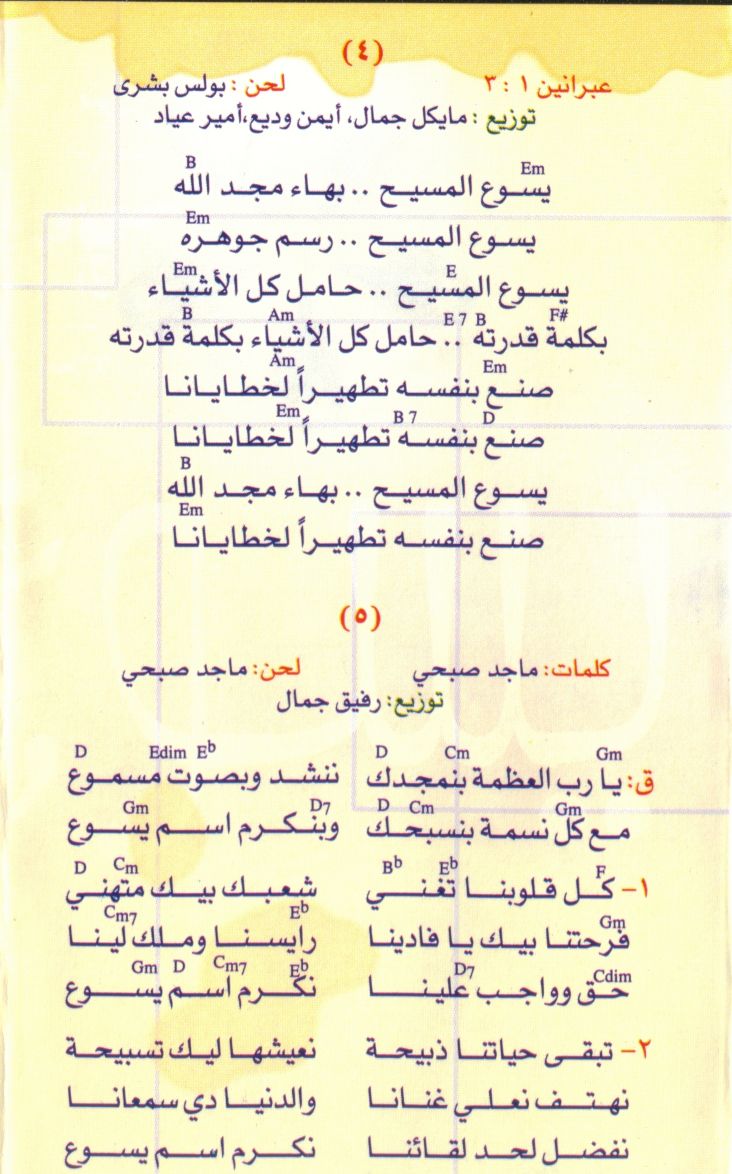 (٤)
عبرانين ١ : ٣ لحن : بولس بشرى
توزيع : مايكل جمال، أيمن وديع،أمير عياد
Em B
يسوع المسيح .. بهاء مجد الله
Em
يسوع المسيح .. رسم جوهره
E Em
يسوع المسيح .. حامل كل الأشياء
F# B E 7 Am B
بكلمة قدرته .. حامل كل الأشياء بكلمة قدرته
Em Am
صنع بنفسه تطهيراً لخطايانا
D B 7 Em
صنع بنفسه تطهيراً لخطايانا
B
يسوع المسيح .. بهاء مجد الله
Em
صنع بنفسه تطهيراً لخطايانا
(٥)
كلمات: ماجد صبحي لحن: ماجد صبحي
توزيع: رفيق جمال
Gm Cm D Eb Edim D
ق: يا رب العظمة بنمجدك ننشد وبصوت مسموع
Gm Cm D D7 Gm
مع كل نسمة بنسبحك وبنكرم اسم يسوع
F Eb Bb Cm D
١- كل قلوبنا تغني شعبك بيك متهني
Gm Eb Cm7
فرحتنا بيك يا فادينا رايسنا وملك لينا
Cdim D7 Eb Cm7 D Gm
حق وواجب علينا نكرم اسم يسوع
٢- تبقى حياتنا ذبيحة نعيشها ليك تسبيحة
نهتف نعلي غنانا والدنيا دي سمعانا
نفضل لحد لقائنا نكرم اسم يسوع